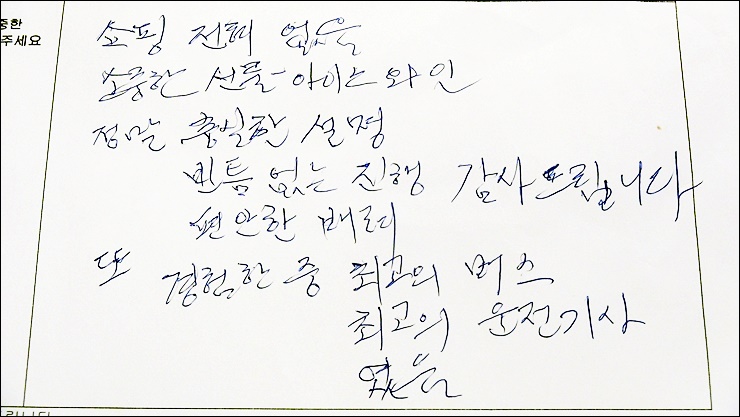 중한
주세요
쇼핑 전혀 없음
소중한 선물-아이스와인
정말 충실한 설명
빈틈 없는 진행 감사드립니다
편안한 배려
또 경험한 중 최고의 버스
최고의 운전기사
였음
립니다